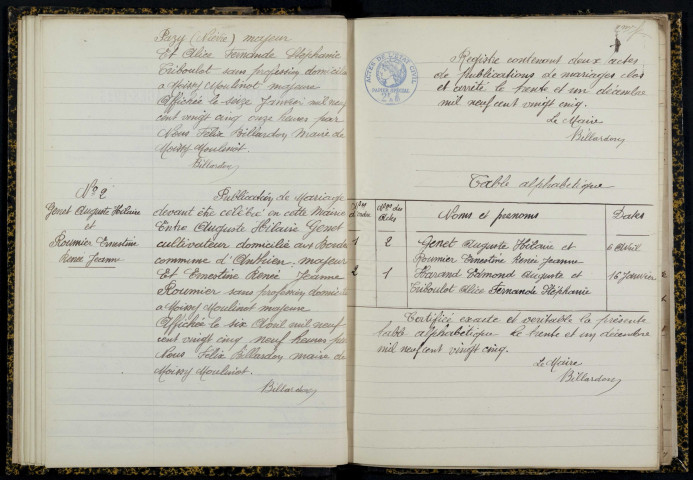 Bazy (Nièvre) majeur
Et Alice Fernande Stéphanie
Triboulot sans profession domiciliée
à Moissy Moulinot majeure
Affichée le seize Janvier mil neuf
cent vingt cinq onze heures par
Nous Félix Billardon, Maire de
Moissy-Moulinot.
Billardon
N° 2
Genet Auguste Hilaire
et
Roumier Ernestine
Renée Jeanne
Publication de Mariage
devant être célébré en cette Mairie
Entre Auguste Hilaire Genet
cultivateur domicilié aux Bordes
commune d'Anthien majeur
Et Ernestine Renée Jeanne
Roumier sans profession domiciliée
à Moissy Moulinot majeure
Affichée le six Avril mil neuf
cent vingt cinq neuf heures par
Nous Félix Billardon maire de
Moissy Moulinot.
Billardon
ACTES DE L'ETAT CIVIL
PAPIER SPECIAL
Registre contenant deux actes
de publications de mariages clos
et arrêté le trente et un décembre
mil neuf cent vingt cinq.
Le Maire
Billardon
Table alphabétique
Nos des Actes
Noms et prénoms
Dates
1 2 Genet Auguste Hilaire et 6 Avril
Roumier Ernestine Renée Jeanne
2 1 Harand Edmond Auguste et 16 Janvier
Triboulot Alice Fernande Stéphanie
Certifié exacte et véritable la présente
table alphabétique le trente et un décembre
mil neuf cent vingt cinq.
Le Maire
Billardon